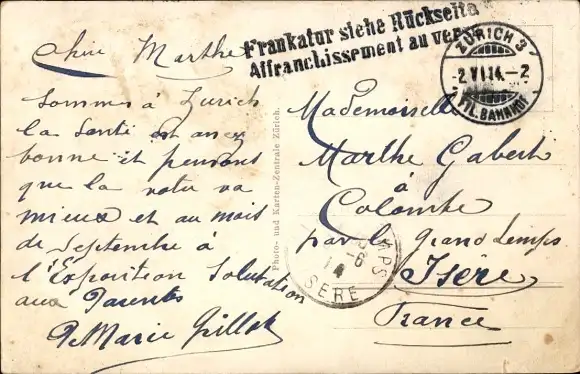 Chère Marthe
Sommes à Zurich
la Santé est assez
bonne et pensons
que la votre va
mieux et au mois
de Septembre à
l'Exposition Salutation
aux Parents
Marie Grillet
Frankatur siehe Rückseite
Affranchissement au verso
ZÜRICH 3
-2.VI.14.-2
FIL. BAHNHOF
Photo- und Karten-Zentrale Zürich.
Mademoiselle
Marthe Gabert
à
Colombe
par le Grand Lemps
Isère
France
-6
14
ISERE